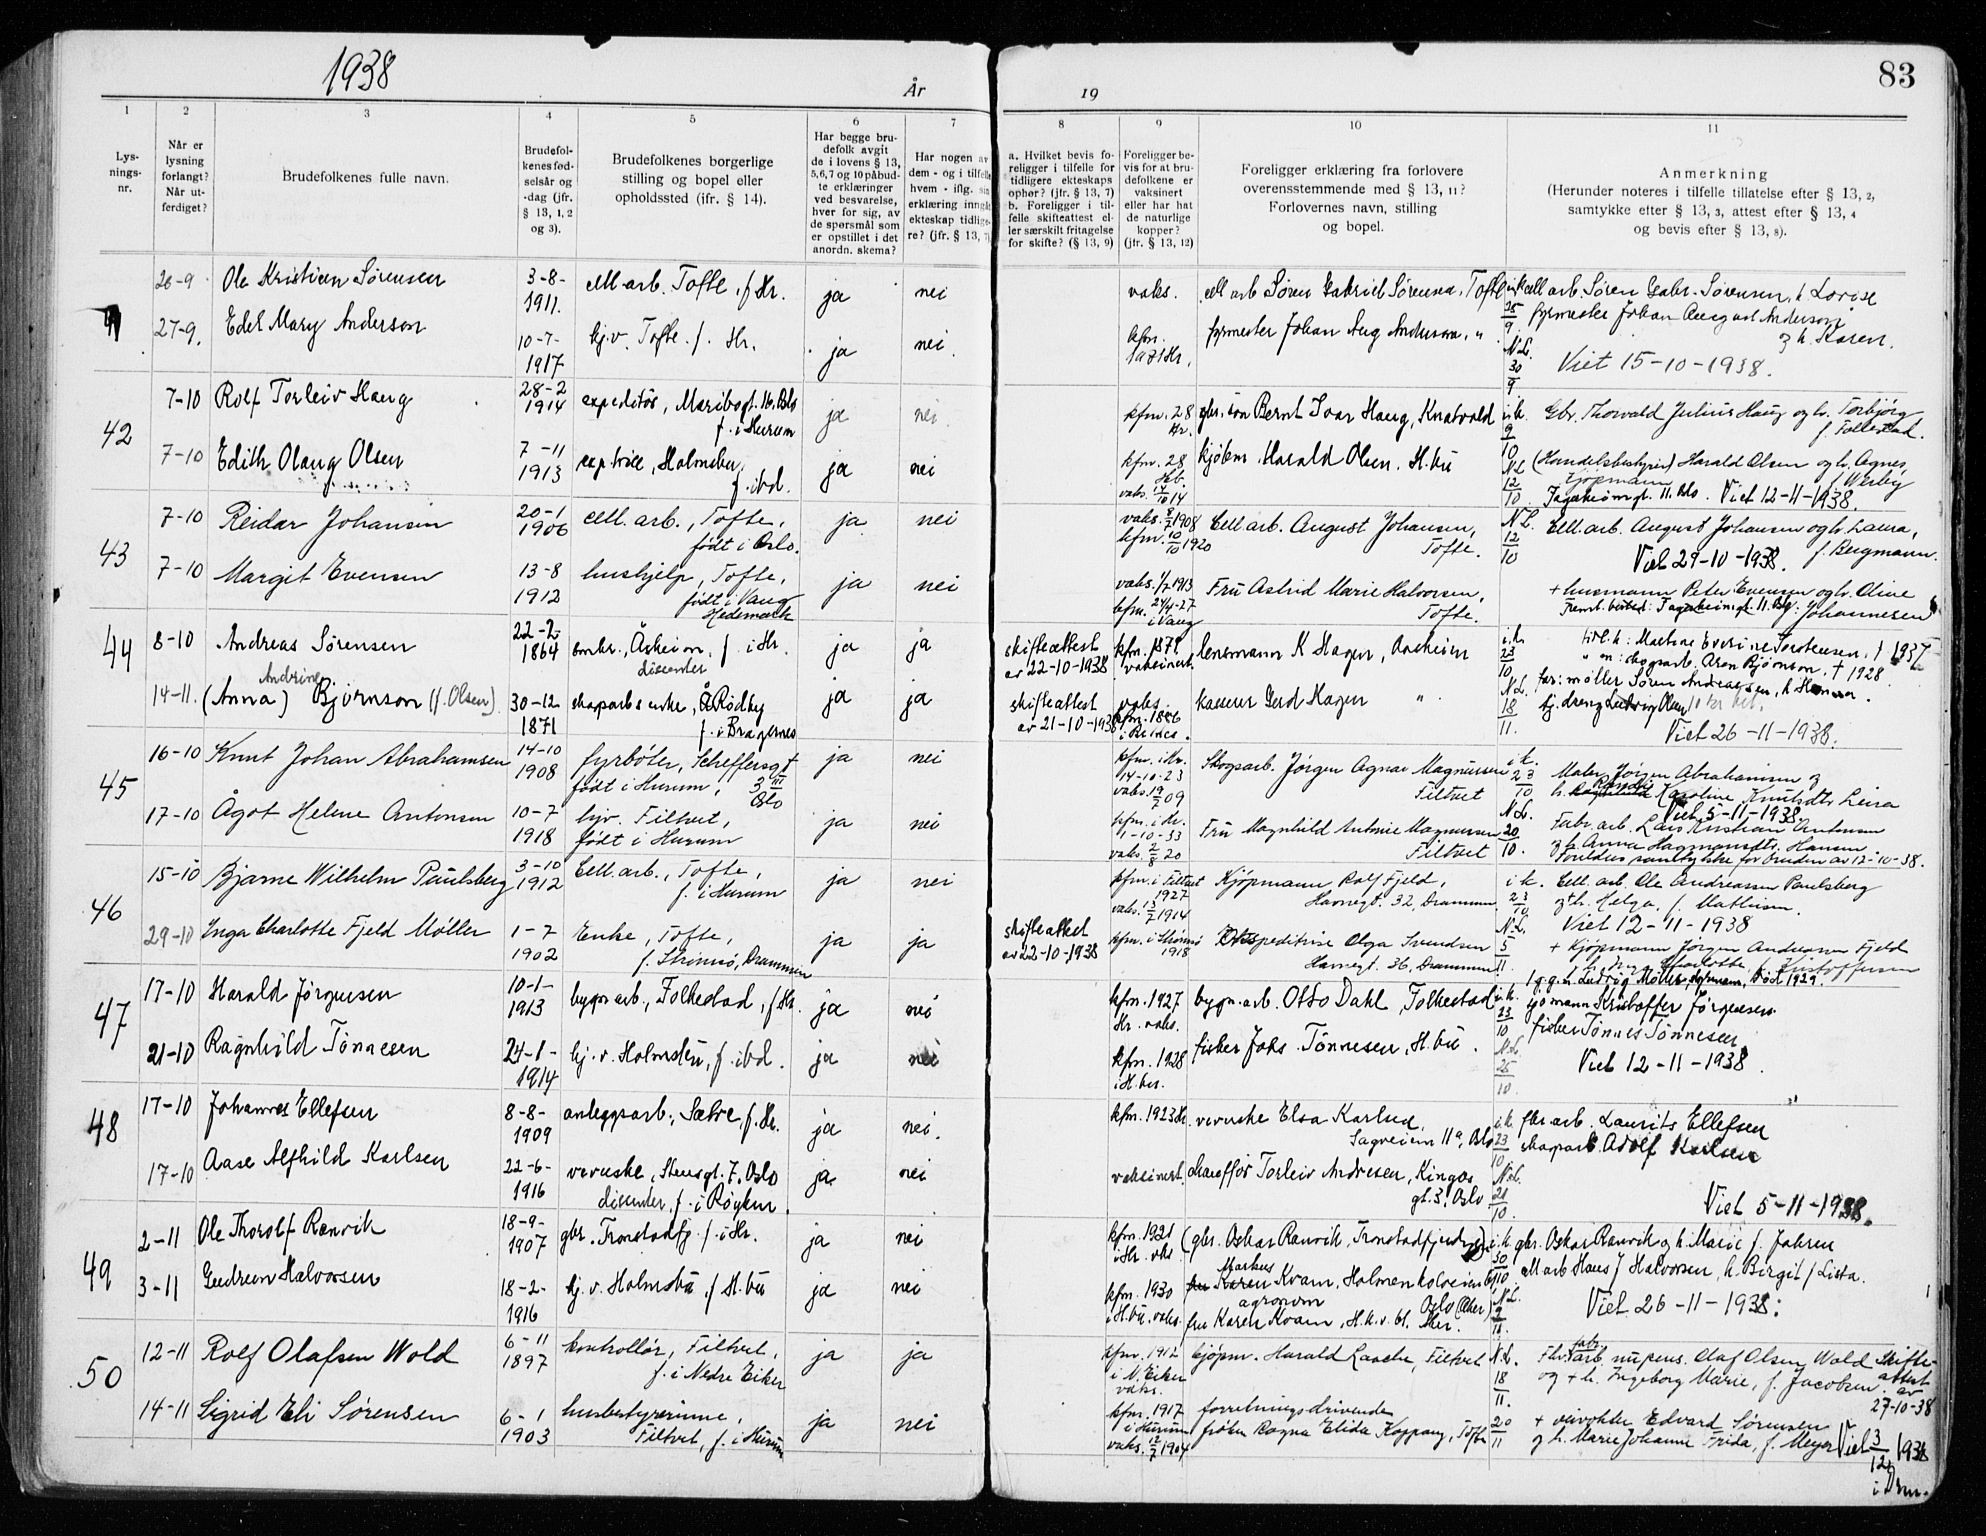 1938
År
19
83
1 2 3 4 5 6 7 8 9 10 11
Lysningsnr.
Når er lysning forlangt? Når utferdiget?
Brudefolkenes fulle navn.
Brudefolkenes fødselsår og -dag (jfr. § 13, 1, 2 og 3).
Brudefolkenes borgerlige stilling og bopel eller opholdssted (ifr. § 14).
Har begge brudefolk avgit de i lovens § 13, 5,6,7 og 10 påbudte erklæringer ved besvarelse, hver for sig, av de spørsmål som er opstillet i det anordn. skema?
Har nogen av dem - og i tilfelle hvem - iflg. sin erklæring inngått ekteskap tidligere? (jfr. § 13, 7)
a. Hvilket bevis foreligger i tilfelle for tidligere ekteskaps ophør? (jfr. § 13, 7)
b. Foreligger i tilfelle skifteattest eller særskilt fritagelse for skifte? (§ 13, 9)
Foreligger bevis for at brudefolkene er vaksinert eller har hat de naturlige kopper? (jfr. § 13, 12)
Foreligger erklæring fra forlovere overensstemmende med § 13, 11? Forlovernes navn, stilling og bopel.
Anmerkning
(Herunder noteres i tilfelle tillatelse efter § 13, 2, samtykke efter § 13, 3, attest efter § 13, 4 og bevis efter § 13, 8).
26-9 Ole Kristian Sørensen 3-8-1911. cell.arb. Tofte, f. Hr. ja nei vaks. cell arb Søren Gabriel Sørensen, Tofte i.k. 25/9 cell arb. Søren Gabr. Sørensen, h. Lovise
27-9. Edel Mary Anderson 10-7-1917 hj.v. Tofte f. Hr. ja nei kfm. 1931 Hr. fyrmester Johan Aug Anderson, " N.L. 30/9 fyrmester Johan August Anderson
og h. Karen.
Viet 15-10-1938.
42
7-10 Rolf Torleiv Haug 28-2 1914 expeditør, Maribogt. 16, Oslo f. i Hurum ja nei kfm. 28 Hr. gbr. søn Bernt Ivar Haug, Knatvold i.k. 9/10 Gbr. Thorvald Julius Haug og h. Torbjørg f. Follestad.
7-10 Edith Olaug Olsen 7-11 1913 exp.trise, Holmsbu, f. ibd. ja nei kfm. 28 Hb. vaks. 14/10 14 kjøbm. Harald Olsen. H.bu N.L 12/10 (Handelsbestyrer) Harald Olsen og h. Agnes, f. Werby
Kjøpmann
Fagerheimgt. 11. Oslo. Viet 12-11-1938.
43
7-10 Reidar Johansen 20-1 1906 cell. arb., Tofte, født i Oslo. ja nei vaks. 8/7 1908 kfm. 10/10 1920 Cell arb. August Johansen, Tofte. N.L. 12/10 Cell. arb. August Johansen og h. Laura, f. Bergmann.
Viet 29-10-1938.
7-10 Margit Evensen 13-8 1912 hushjelp, Tofte, født i Vang Hedemark ja nei vaks. 1/7 1913 kfm. 24/4-27 i Vang Fru Astrid Marie Halvorsen, Tofte. + husmann Peter Evensen og h. Oline f. Johannesen
44
8-10 Andreas Sørensen 22-2-1864 Åsheim, f. i Hr. dissenter ja ja skifteattest av 22-10-1938 kfm. 1879 vaksinert. lensmann K Hagen, Aasheim i.k. 23/10 tidl. h: Martine Everine Torstensen, † 1937
" m: skogsarb. Aron Bjørnson, † 1928
14-11. (Anna) Andrine Bjørnson (f. Olsen) 30-12 1871 skogarb s enke, Å Rødby f. i Bragernes ja ja skifteattest av 21-10-1938 vaks. kfm. 1886 kasserer Gerd Hagen " N.L. 18/11. far: møller Søren Andreassen, h. Hanna
hj. dreng Ludvig Olsen
Viet 26-11-1938.
45
16-10 Knut Johan Abrahamsen 14-10 1908 fyrbøter, Scheffersgt 3 III Oslo født i Hurum, ja nei kfm. i Hr. 14-10-23 vaks. 19/7 09 Skogsarb. Jørgen Agnar Magnussen Filtvet i.k. 23/10 Maler Jørgen Abrahamsen og
h. Randi Karoline Knutsdtr Leira
Viet 5-11-1938.
17-10 Ågot Helene Antonsen 10-7 1918 hjv. Filtvet, født i Hurum ja nei kfm. i Hr. 1-10-33 vaks. 2/8 20 Fru Magnhild Antonie Magnussen Filtvet N.L. 20/10. Fabr. arb. Lars Kristian Antonsen
og h. Anna Hagmansdtr. Hansen
Foreldres samtykke for bruden av 12-10-38.
46
15-10 Bjarne Wilhelm Paulsberg 3-10 1912 Cell. arb., Tofte, f. i Hurum ja nei kfm. i Filtvet 1927 vaks. 13/7 1914 Kjøpmann Rolf Fjeld, Havnegt. 32, Drammen i k. 23/10 Cell. arb. Ole Andreassen Paulsberg
og h. Helga, f. Mathisen.
Viet 12-11-1938
29-10 Inga Charlotte Fjeld Møller 1-7 1902 Enke, Tofte, f. Strømsø, Drammen ja ja skifteattest av 22-10-1938 kfm. i Strømsø 1918 Ekspeditrise Olga Svendsen Havnegt. 36, Drammen N.L. 5/11. + Kjøpmann Jørgen Andreassen Fjeld
h. Inga Charlotte, f. Kristoffersen
47
17-10 Harald Jörgensen 10-1-1913 bygn arb., Folkestad, f. Hr. ja nei kfm. 1927 Hr. vaks. bygn. arb. Otto Dahl, Folkestad i.k. 23/10 sjømann Kristoffer Jörgensen
21-10 Ragnhild Tønnesen 24-1-1914 hj. v. Holmsbu, f. ibd. ja nei kfm. 1928 i H.bu. fisker Johs. Tønnesen, H.bu. N.L. 25/10 fisker Tønnes Tønnesen
Viet 12-11-1938.
48
17-10 Johannes Ellefsen 8-8-1909 anleggsarb., Sætre, f. Hr. ja nei. kfm. 1923 Hr. verneske Elsa Karlsen, Sagveien 11a, Oslo i.k. 23/10 gbr. arb. Laurits Ellefsen
17-10 Aase Alfhild Karlsen 22-6-1916 verneske, Stensgt. 7, Oslo dissenter, f. i Røyken. ja nei vaksinert. chauffør Torleiv Andresen, Kingos gt. 3, Oslo N.L. 21/10. skogarb. Adolf Karlsen
Viet 5-11-1938.
49
2-11 Ole Thorolf Rønvik 18-9-1907 gbr. Tronstadfj. f. i Hr. ja nei kfm. 1921 i Hr. vks (gbr. Oskar Rønvik, Tronstadfjerdingen) i.k. 30/10 gbr. Oskar Rønvik og h. Marie f. Jahren
3-11 Gudrun Halvorsen 18-2-1916 hj. v. Holmsbu, f. H.bu ja nei kfm. 1930 i H.bu. vaks. Markus Kvam, Holmenkolveien agronom Oslo (Aker)
fru Karen Kvam, H.k.v. 61. Aker. N.L. cell arb Hans J Halvorsen, h. Birgit f Lista.
Viet 26-11-1938.
50
12-11 Rolf Olafsen Wold 6-11 1897 kontrollør, Filtvet, f. i Nedre Eiker ja ja kfm. 1912 i N. Eiker vaks. kjøpm. Harald Laache, Filtvet N.L. 18/11. Fhv. fabr. arb. nu pens. Olaf Olsen Wold
og + h. Ingeborg Marie, f. Jacobsen. Skifteattest av 27-10-38
14-11 Sigrid Eli Sørensen 6-1 1903 husbestyrerinne, Filtvet, f. i Hurum ja nei kfm. 1917 i Hurum vaks. 12/7 1904 forretningsdrivende frøken Ragna Elida Koppang, Tofte 20/11 + veivokter Edvard Sørensen
og h. Marie Johanne Frida, f. Meyer Viet 3/12 1938 i Drm.